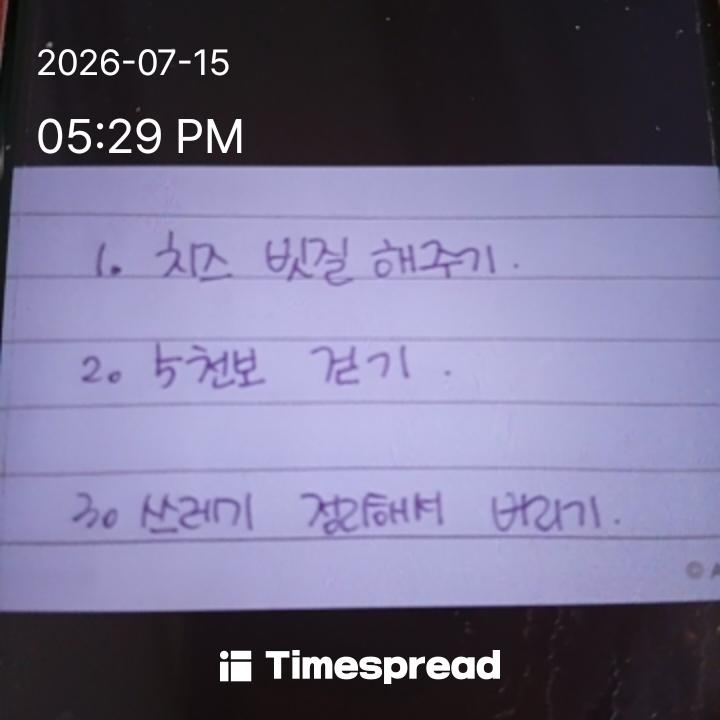 2026-07-15
05:29 PM
1. 치즈 빗질 해주기.
2. 5천보 걷기.
3. 쓰레기 정리해서 버리기.
©
Timespread